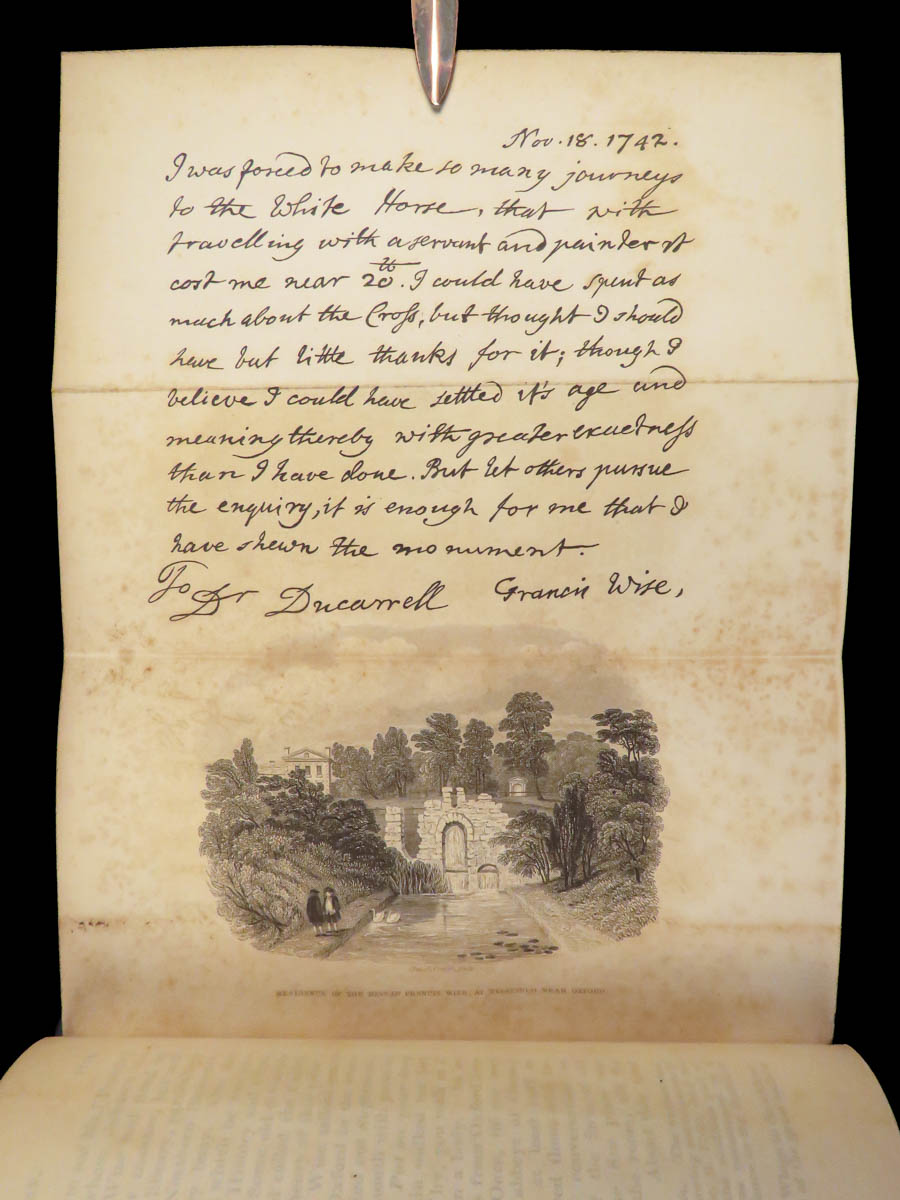 Nov. 18. 1742.
I was forced to make so many journeys
to the White Horse, that with
travelling with a servant and painter it
cost me near 20^{tt}. I could have spent as
much about the Croſs, but thought I should
have but little thanks for it; though I
believe I could have settled it's age and
meaning thereby with greater exactneſs
than I have done. But let others pursue
the enquiry, it is enough for me that I
have shewn the monument.
To Dr Ducarrell Francis Wise,
RESIDENCE OF THE REV. FRANCIS WISE, AT NEAR OXFORD